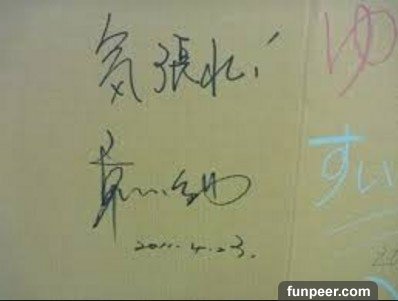 気張れ!
2011.4.23.
ゆ
すい
funpeer.com